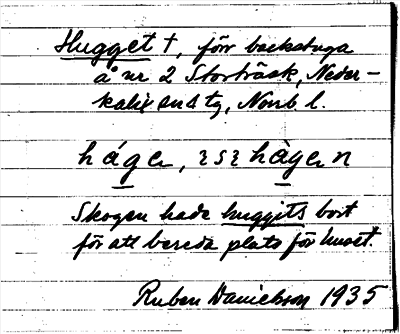 Hugget †, förr backstuga
å nr 2 Storträsk, Neder-
kalix sn o tg, Norrb l.
håge, 2s2 hågen
Skogen hade huggits bort
för att bereda plats för huset.
Ruben Danielsson 1935